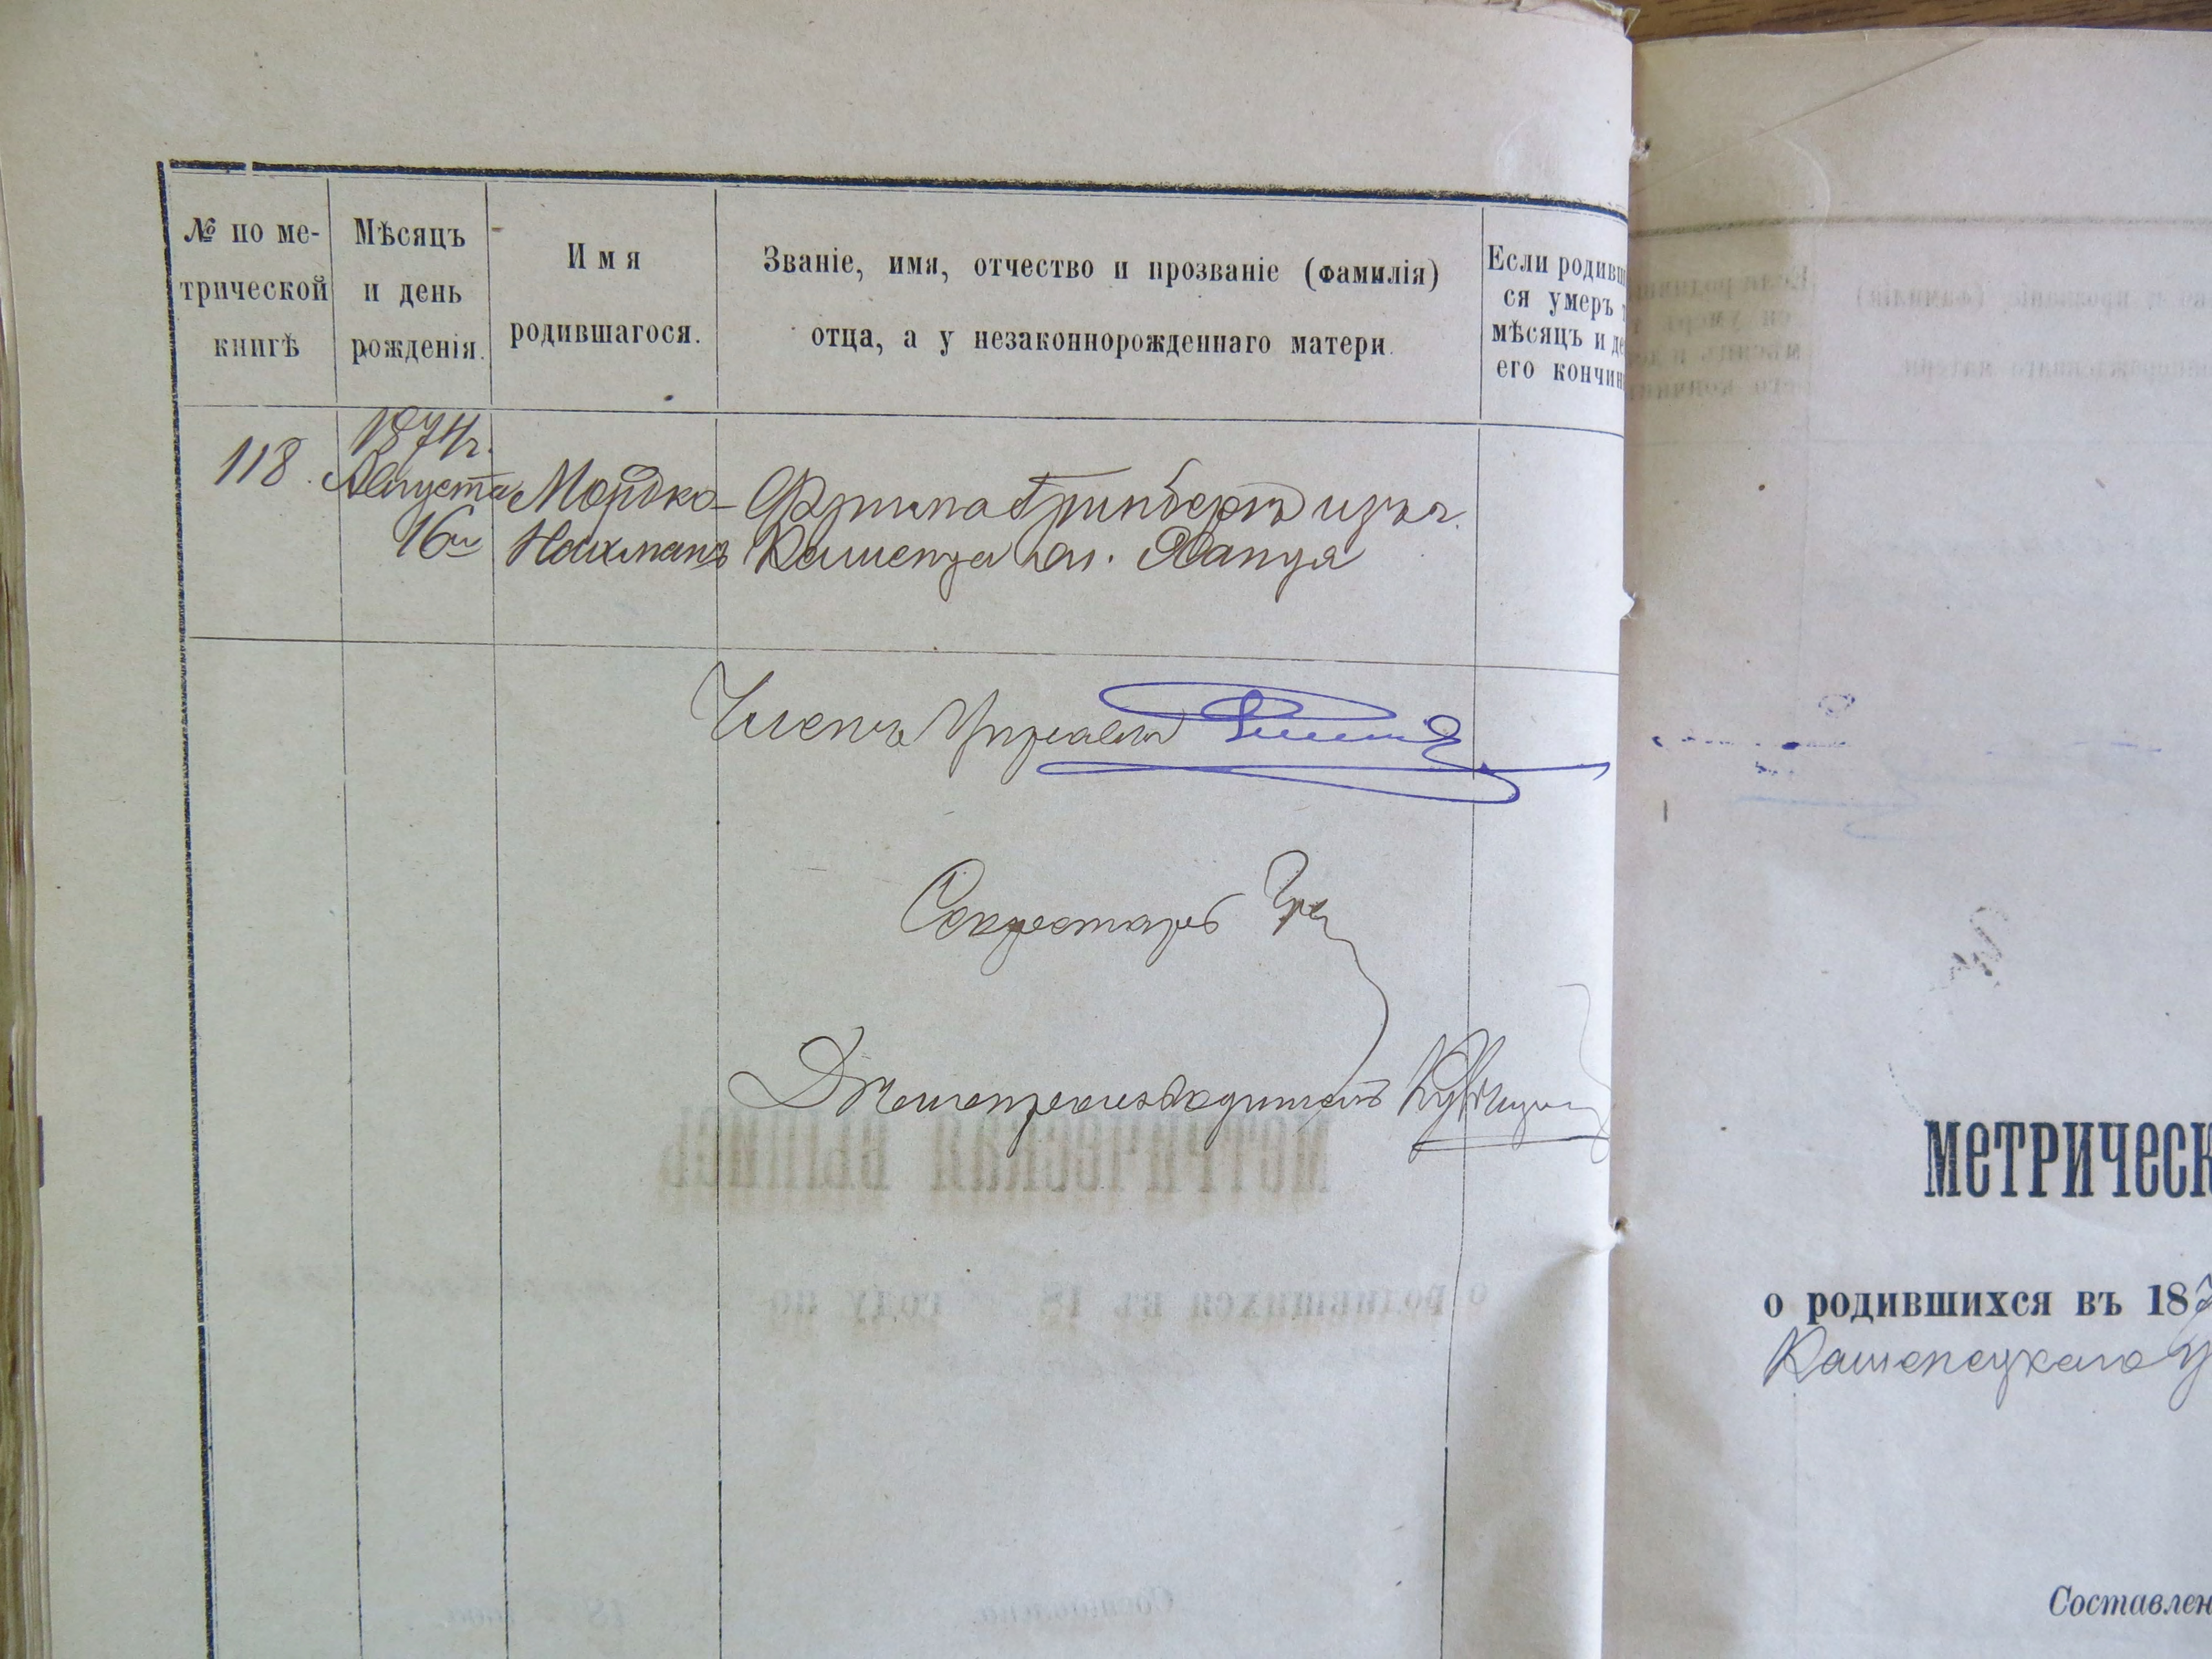 № по ме-
трической
книгѣ
Мѣсяцъ
и день
рожденія.
Имя
родившагося.
Званіе, имя, отчество и прозваніе (фамилія)
отца, а у незаконнорожденнаго матери.
Если родивш
ся умеръ
мѣсяцъ и де
его кончин
118.
1874г.
Августа
16
Мордко-
Нахманъ
Фроима Гринбергъ изъ г.
Каменца
Членъ Управы
Секретарь
Дѣлопроизводитель
МЕТРИЧЕСК
о родившихся въ 187
Каменецкаго у
Составлен